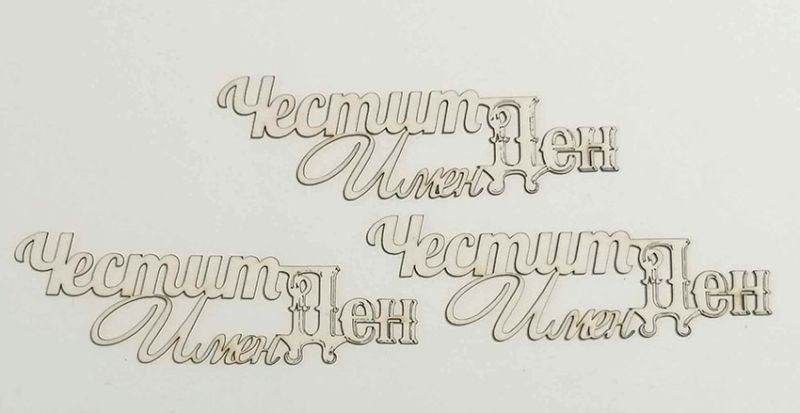 Честит
Имен Ден
Честит
Имен Ден
Честит
Имен Ден